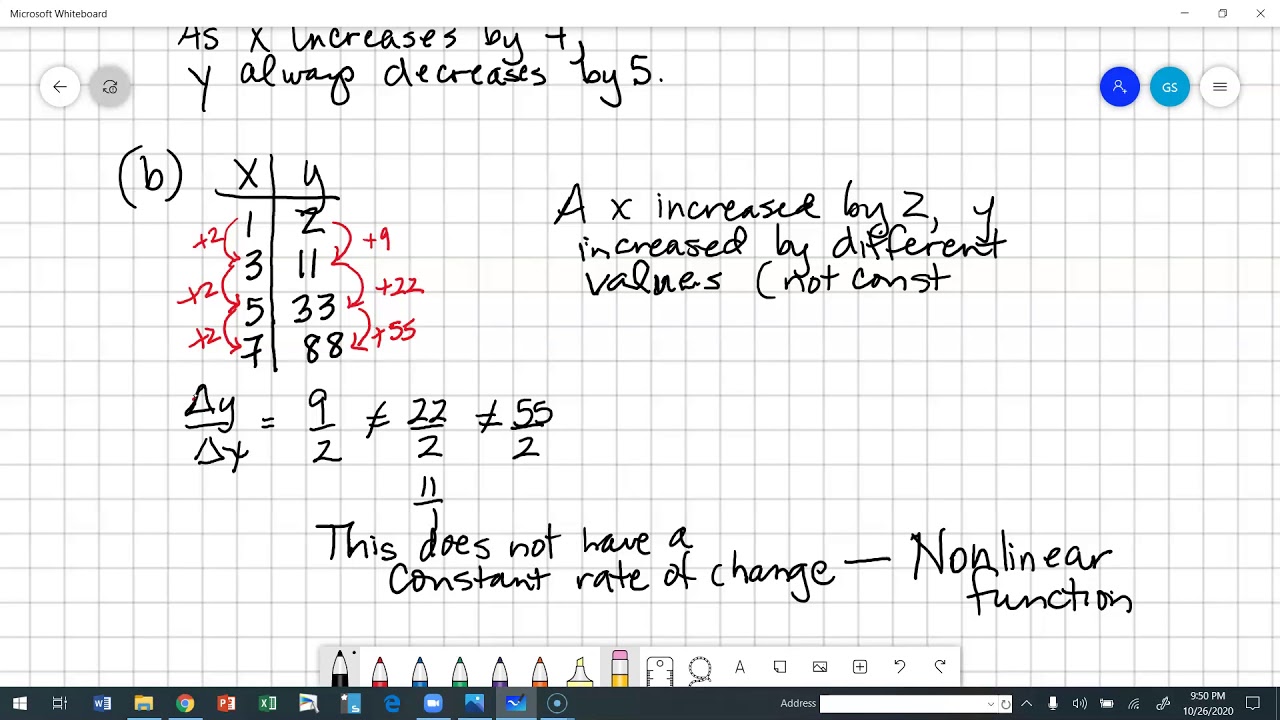 Microsoft Whiteboard
As x increases by 4,
y always decreases by 5.
GS
(b)
x y
1 2
3 11
5 33
7 88
+2 +9
+2 +22
+2 +55
A x increased by 2, y
increased by different
values (not const
Δy/Δx = 9/2 ≠ 22/2 ≠ 55/2
11/1
This does not have a
constant rate of change — Nonlinear
function
Address
9:50 PM
10/26/2020